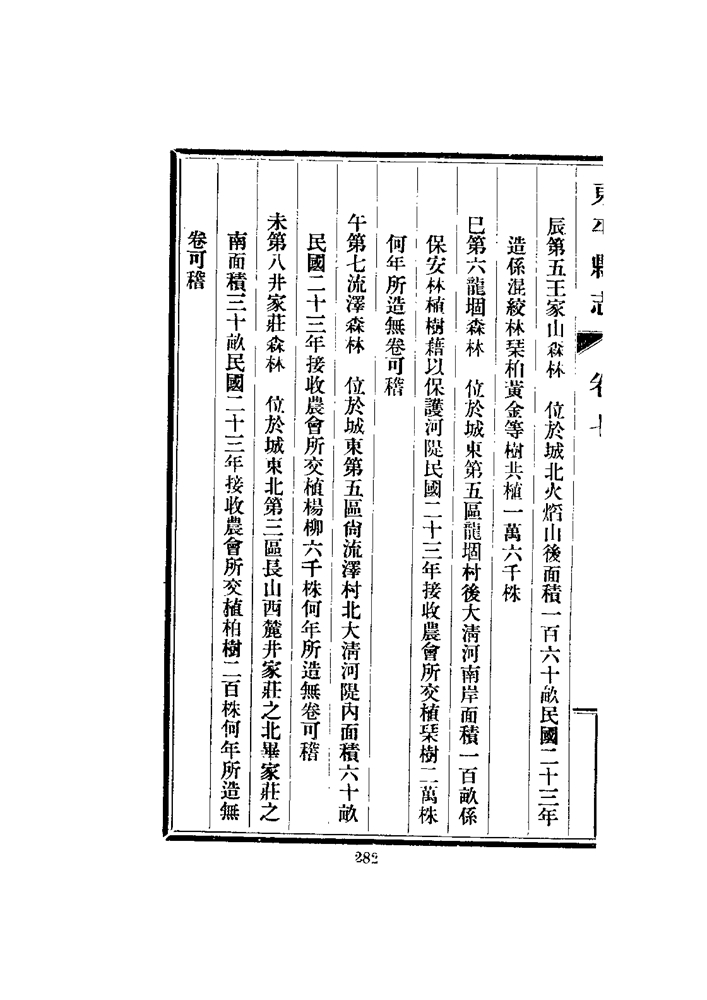 東平縣志 卷七
辰第五王家山森林 位於城北火熖山後面積一百六十畝民國二十三年
造係混絞林栞柏黃金等樹共植一萬六千株
巳第六龍堌森林 位於城東第五區龍堌村後大淸河南岸面積一百畝係
保安林植樹藉以保護河隄民國二十三年接收農會所交植栞樹二萬株
何年所造無卷可稽
午第七流澤森林 位於城東第五區尙流澤村北大淸河隄內面積六十畝
民國二十三年接收農會所交植楊柳六千株何年所造無卷可稽
未第八井家莊森林 位於城東北第三區長山西麓井家莊之北畢家莊之
南面積三十畝民國二十三年接收農會所交植柏樹二百株何年所造無
卷可稽
282